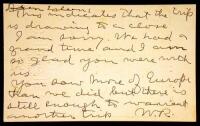 This indicates that the trip
is drawing to a close
I am sorry. We had a
grand time and I am
so glad you were with
us.
You saw more of Europe
than we did but there is
still enough to warrant
another trip W.R.